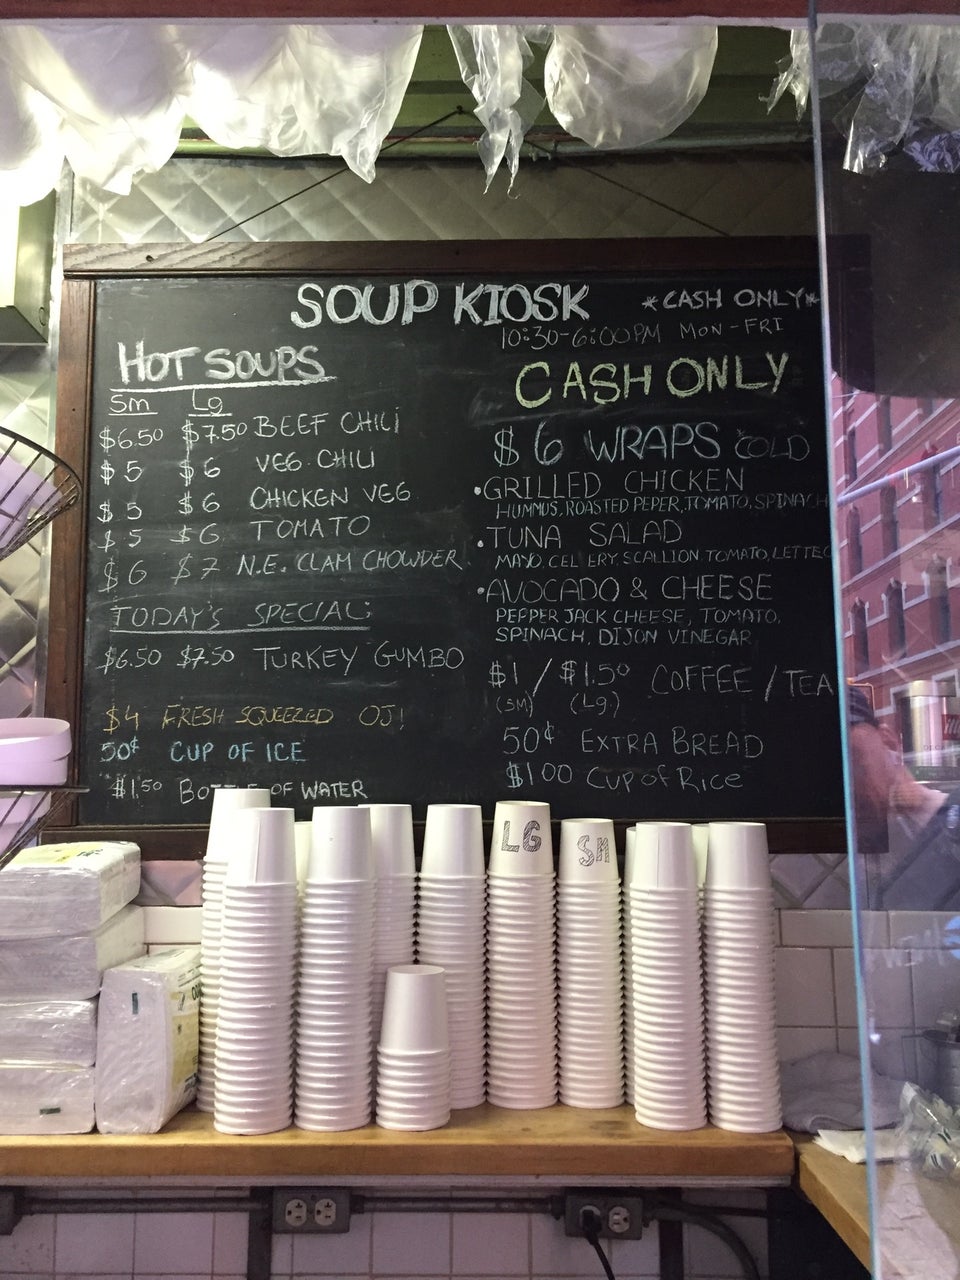 SOUP KIOSK
*CASH ONLY*
10:30-6:00PM MON-FRI
CASH ONLY
HOT SOUPS
Sm Lg
$6.50 $7.50 BEEF CHILI
$5 $6 VEG. CHILI
$5 $6 CHICKEN VEG
$5 $6 TOMATO
$6 $7 N.E. CLAM CHOWDER
TODAY'S SPECIAL:
$6.50 $7.50 TURKEY GUMBO
$4 FRESH SQUEEZED OJ!
50¢ CUP OF ICE
$1.50 OF WATER
$6 WRAPS COLD
•GRILLED CHICKEN
HUMMUS, ROASTED PEPER, TOMATO, SPINACH
•TUNA SALAD
MAYO, CELERY, SCALLION, TOMATO, LETTEC
•AVOCADO & CHEESE
PEPPER JACK CHEESE, TOMATO,
SPINACH, DIJON VINEGAR
$1 / $1.50 COFFEE / TEA
(SM) (Lg.)
50¢ EXTRA BREAD
$1.00 Cup of Rice
LG
SM